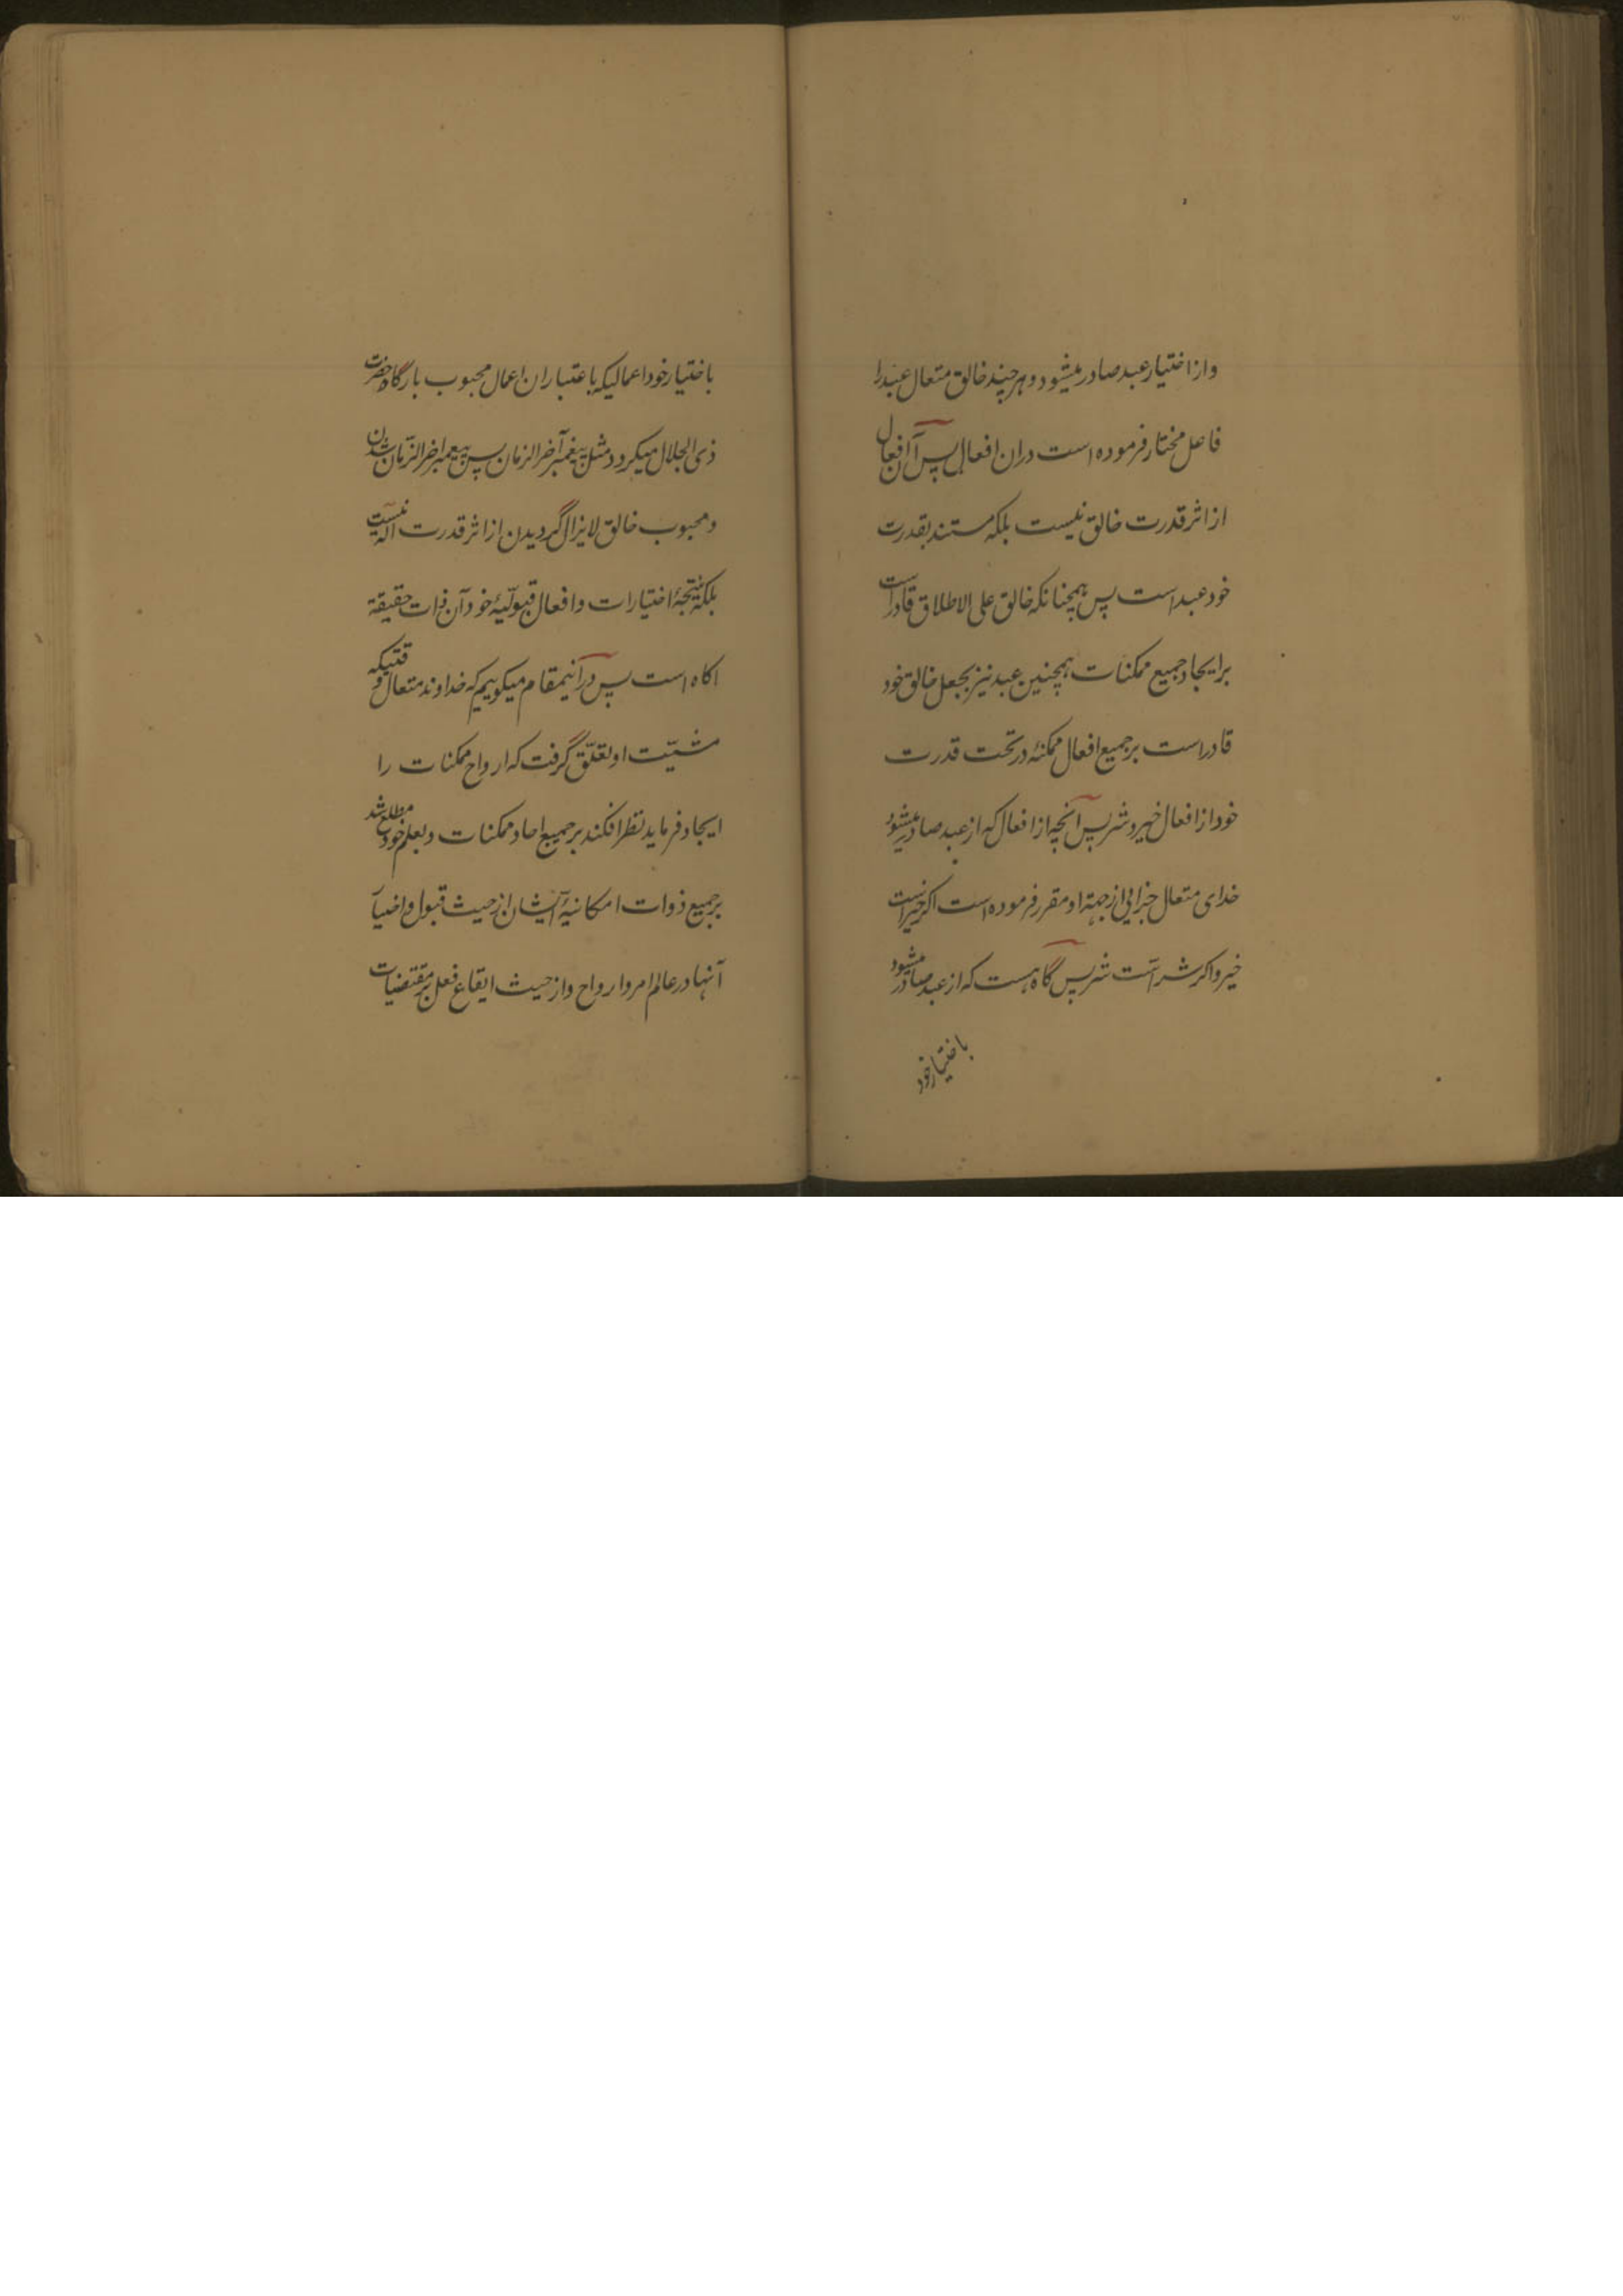 واز اختیار عبد صادر میشود و هر چند خالق متعال عبد را
فاعل مختار فرموده است دران افعال پس آن افعال
از اثر قدرت خالق نیست بلکه مستند بقدرت
خود عبد است پس همچنانکه خالق علی الاطلاق قادر است
بر ایجاد جمیع ممکنات همچنین عبد نیز بجعل خالق خود
قادر است بر جمیع افعال ممکنهٔ در تحت قدرت
خود از افعال خیر و شر پس آنچه از افعال که از عبد صادر میشود
خدای متعال جزائی از جهة او مقرر فرموده است اکر خیر است
خیر واکر شر است شر پس گاه هست که از عبد صادر میشود
باختیار خود
باختیار خود اعمالیکه باعتبار ان اعمال محبوب بارگاه حضرت
ذی الجلال میکردد مثل پیغمبر آخر الزمان پس پیغمبر اخر الزّمان شدن
و محبوب خالق لایزال گردیدن از اثر قدرت اله نیست
بلکه نتیجهٔ اختیارات و افعال قبولیّهٔ خود آن ذات حقیقة
اکاه است پس در اینمقام میکوییم که خداوند متعال وقتیکه
مشیّت او تعلّق گرفت که ارواح ممکنات را
ایجاد فرماید نظر افکند بر جمیع احاد ممکنات و بعلم خود مطلع شد
بر جمیع ذوات امکانیهٔ ایشان از حیث قبول و اختیار
آنها در عالم امر و ارواح و از حیث ایقاع فعل بر مقتضیات